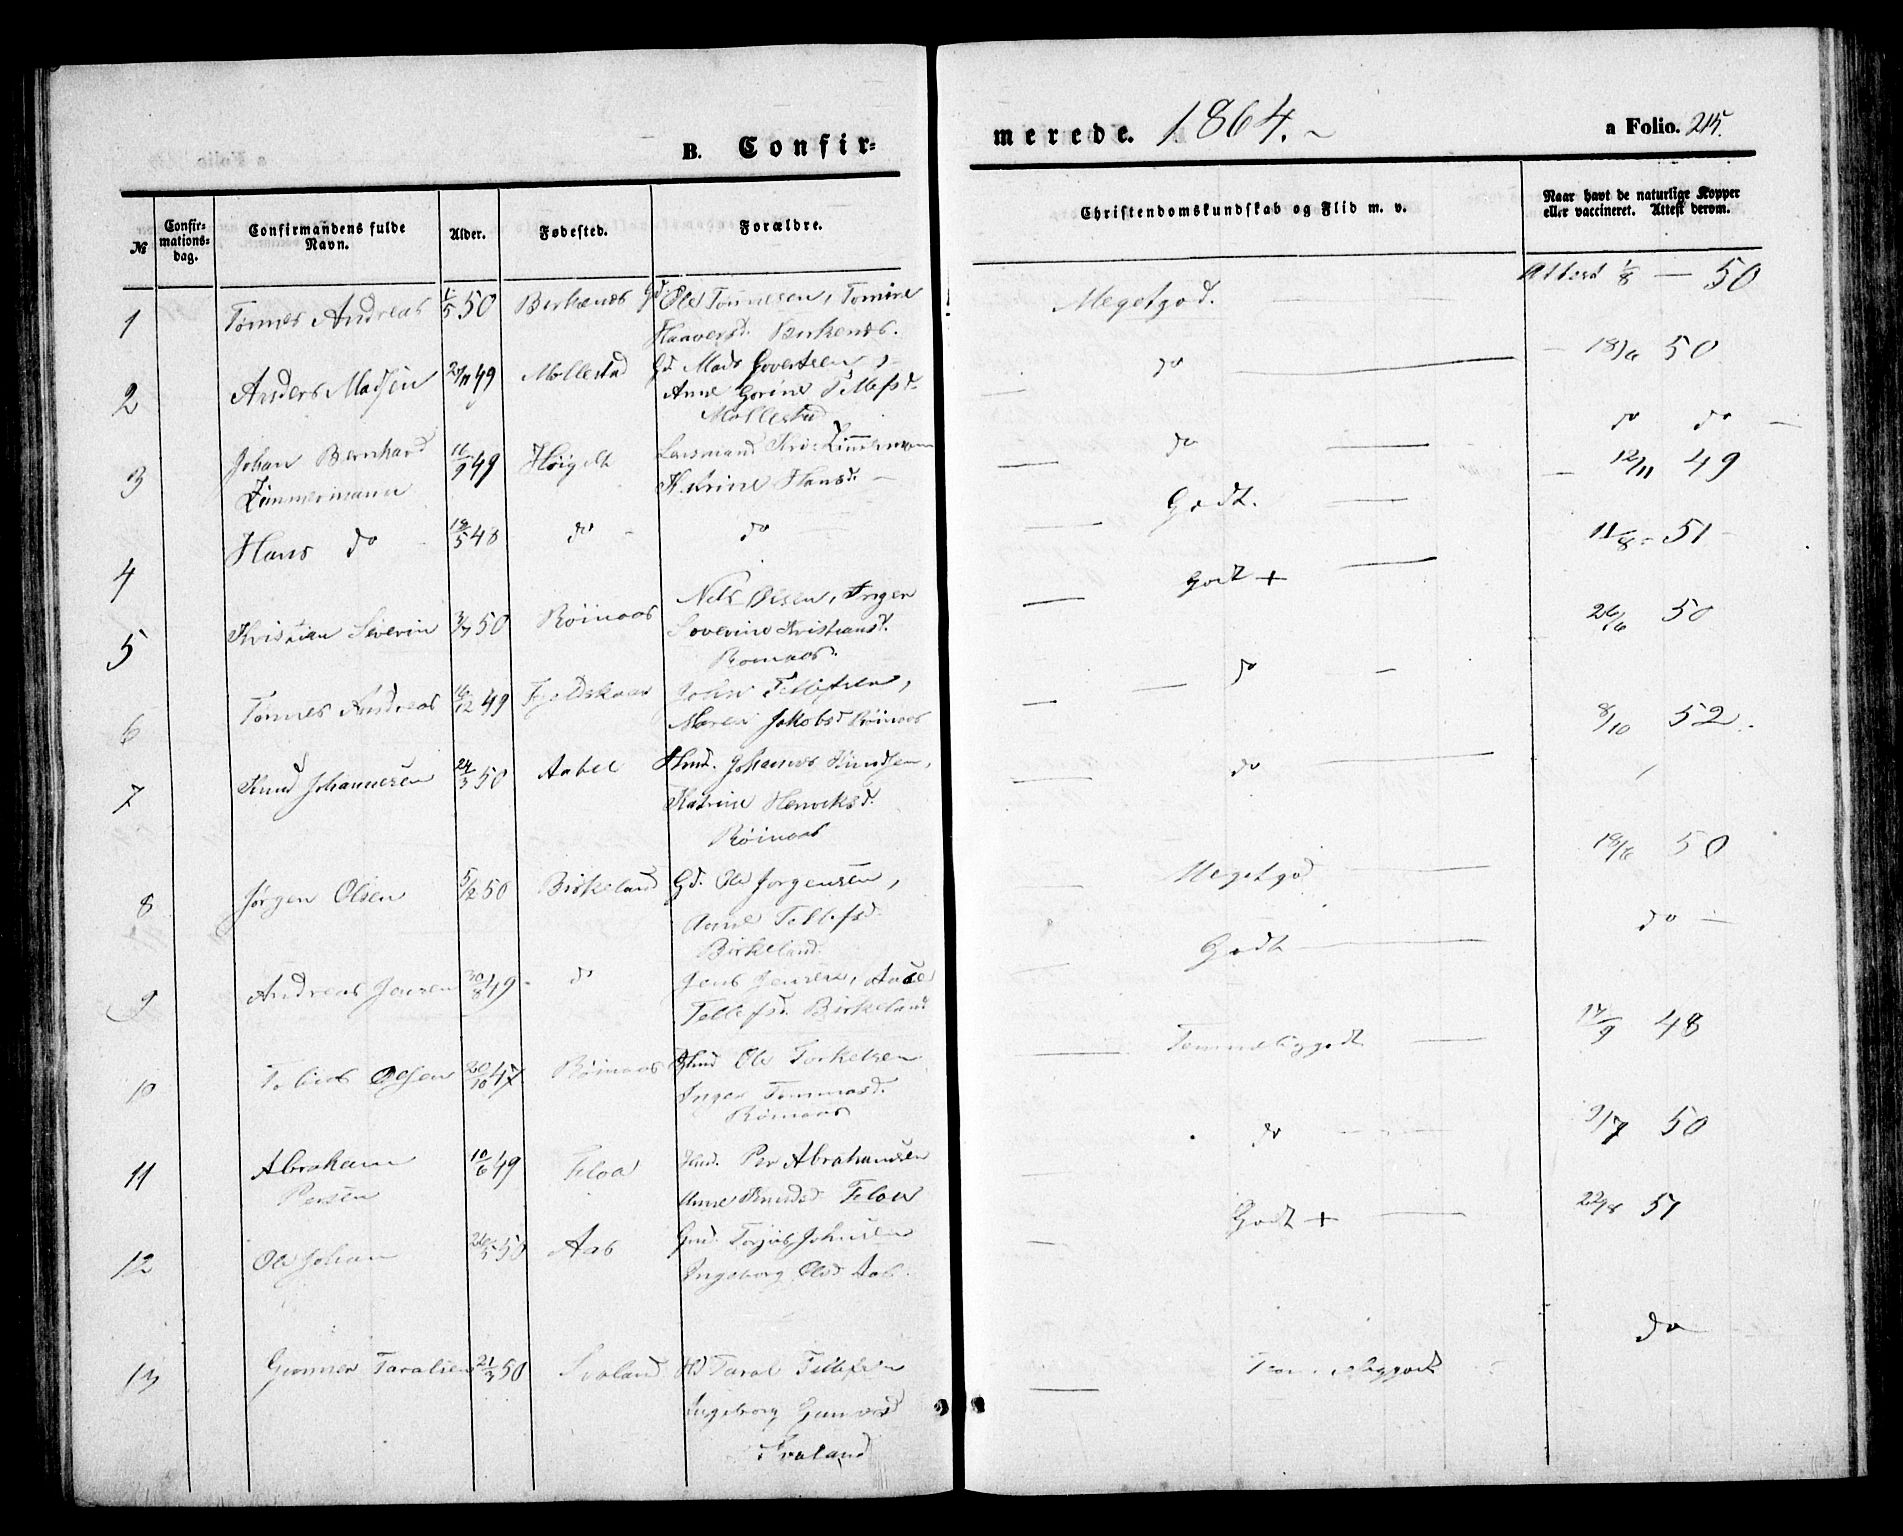 B. Confir-
merede. 1864. a Folio. 215.
№
Confir-mations-dag.
Confirmandens fulde Navn.
Alder.
Fødested.
Forældre.
Christendomskundskab og Flid m. v.
Naar havt de naturlige Kopper eller vaccineret. Attest derom.
1 Tønnes Andreas 1/5 50 Birkenes Gd Ole Tønnesen, Tomine Meget god. Attest 1/8 — 50
Birkenes.
2 Anders Madsen 49 Mollestad Gd Mads Govertsen, do 18/6 50
Anne Gorine Tellefsd.
Mollestad
3 Johan Bernhard 16/9 49 Høigilt Lensmand Zimmermann do do do
Zimmermann Katrine Hansd.
4 Hans do 18/5 48 do do Godt. 12/11 49
5 Kristian Severin 3/7 50 Røinaas Nels Olsen, Inger Godt + 11/8 51
Severine Kristiansd.
Røinaas.
6 Tønnes Andreas 16/12 49 John Tellefsen, do 26/6 50
Maren Jakobsd Røinaas
7 Knud Johannesen 24/3 50 Aabel Hmd. Johannes Knudsen, do 8/10 52
Katrine Henriksd.
Røinaas
8 Jørgen Olsen 5/12 50 Birkeland Gd. Ole Jørgensen, Meget god 18/6 50
Anne Tellefsd.
Birkeland
9 Andreas Jensen 30/8 49 do Jens Jensen, Godt do
Tellefsd. Birkeland
10 Tobias Olsen 20/10 47 Røinaas Hmd Ole Torkelsen Temmelig godt 17/9 48
Inger Tommasd.
Røinaas
11 Abraham 10/6 49 Floa Hmd. Per Abrahamsen do 9/7 50
Persen Anne Knudsd Floa
12 Ole Johan 26/5 50 Aas Gmd. Torjus Johnsen Godt + 22/8 51
Ingeborg Olsd Aas.
13 Gunner Taralsen 21/3 50 Svaland Hd Taral Tellefsen Temmelig godt do
Ingeborg Gunnersd
Svaland